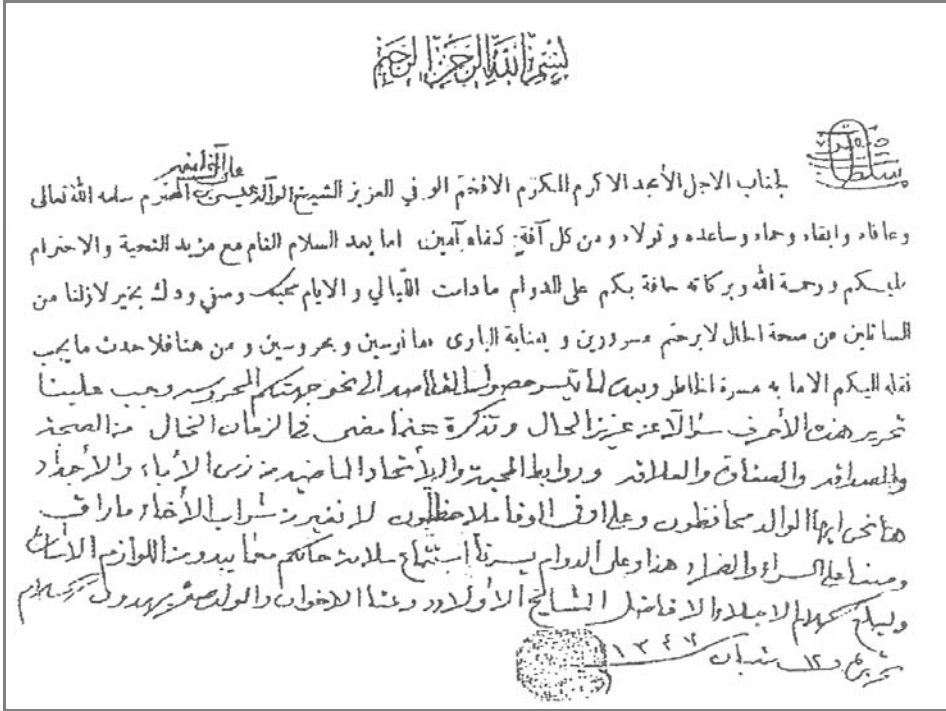 بسم الله الرحمن الرحيم
جناب الاجل الأمجد الاكرم المكرم الافخم الوفي العزيز الشيخ الوالد عيسى بن المحترم سلمه الله تعالى
وعافاه وابقاه وحماه وساعده وتولاه ومن كل آفة كفاه آمين، اما بعد السلام التام مع مزيد التحية والاحترام
عليكم ورحمة الله وبركاته حافة بكم على الدوام مادامت الليالي والايام محبك ومني ودك بخير لازلنا من
السائلين عن صحة الحال لابرحتم مسرورين و بعناية البارى مأنوسين ومحروسين و من هنا فلا حدث ما يجب
نقله اليكم الا ما به مسرة الخاطر وبعد لما تيسر نحو جهتكم المحروسه وجب علينا
تحرير هذه الأحرف سؤالا عن عزيز الحال وتذكرة عنما مضى في الزمان الخال من الصحبة
والصداقه والعلاقه وروابط المحبة والأتحاد الماضيه من زمن الأباء والأجداد
ها نحن ايها الوالد محافظون وعلى اوفى الوفا ملاحظون لا نغير من شراب الأخاء ماراق
ومننا على السراء والضراء هذا وعلى الدوام يسرنا استماع سلامة حالكم مهما يبدو من اللوازم
وابلغ سلام الاجلاء الافاضل المشايخ الأولاد ومنا الاخوان والولد صقر يهدون السلام
تحريرا في ١٢ شعبان ١٣٤٧